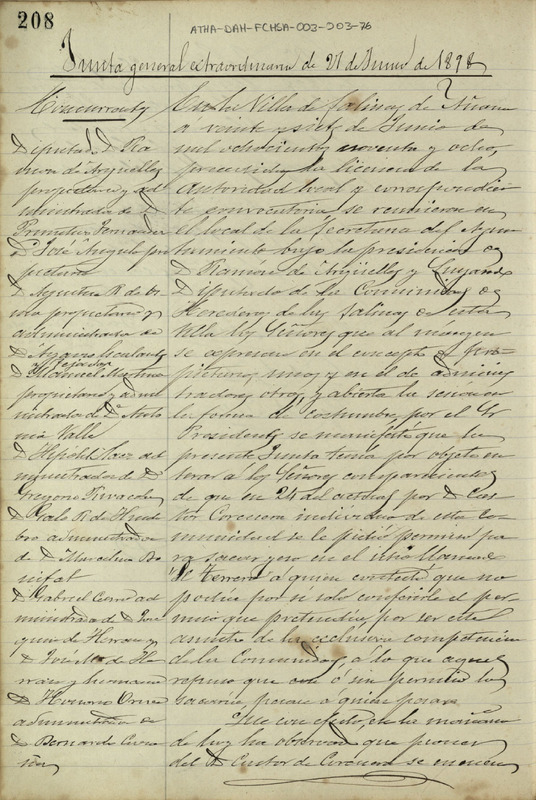 208
ATHA-DAH-FCHSA-003-003-76
Junta general extraordinaria de 27 de Junio de 1898
Concurrentes
Diputado D. Ra
mon de Arguelles
propietario y ad
ministrador de D.
Primitivo Fernandez
D. José Angulo pro
pietario
D. Agustin R. de
propietario y
administrador de
D. Manuel
propietario y admi
nistrador de Dª Anto
nia Valle
D. Hipolito Saez ad
ministrador de D.
Gregorio
D. Galo R. de
administrador
de D. Marcelino Bo
nifaz
D. Gabriel ad
ministrador de D. Joa
quin de Herran y
D. José Mª de He
rran y hermano
D. Honorio
administrador de
D. Bernardo
En la Villa de Salinas de Añana
á veinte y siete de Junio de
mil ochocientos noventa y ocho,
precedida la licencia de la
autoridad local y correspondien
te convocatoria se reunieron en
el local de la Secretaria del Ayun
tamiento bajo la presidencia de
D. Ramon de Arguelles y
Diputado de la Comunidad de
Herederos de las Salinas de esta
Villa los Señores que al márgen
se expresan en el concepto de pro
pietarios unos y en el de adminis
tradores otros, y abierta la sesión en
la forma de costumbre por el Sr
Presidente se manifestó que la
presente Junta tenia por objeto en
terar á los Señores comparecientes
de que en 24 del actual por D. Cas
tor individuo de esta Co
munidad se le pidió permiso pa
ra sacar yeso en el sitio
el Terrero á quien contestó que no
podia por si solo conferirle el per
miso que pretendia por ser este
asunto de la exclusiva competencia
de la Comunidad, á lo que aquel
repuso que con ó sin permiso lo
sacaria, pesase á quien pesara
Que con efecto, en la mañana
de hoy ha observado que
del D. Castor de se